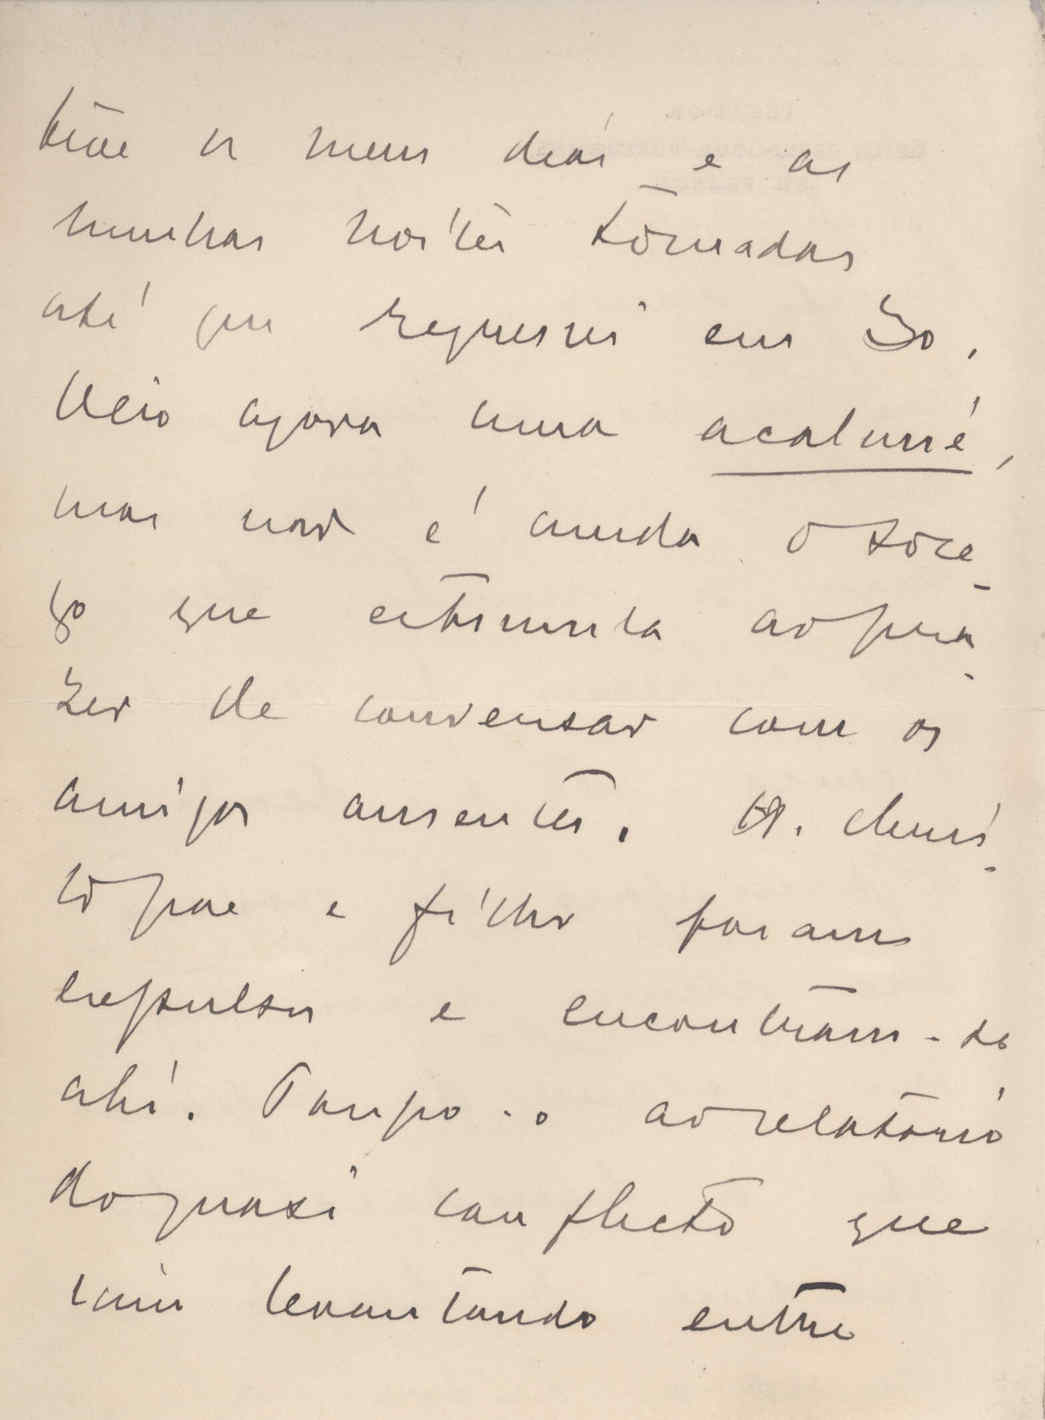 os meus dias e as
minhas noites tomadas
até que regressei em 30.
Veio agora uma acalmie,
mas não é ainda o soce-
go que estimula ao pra-
zer de conversar com os
amigos ausentes. O.
pae e filho foram
expulsos e encontram-se
ahi. Poupo-o ao relatorio
do quasi conflicto que
iam levantando entre